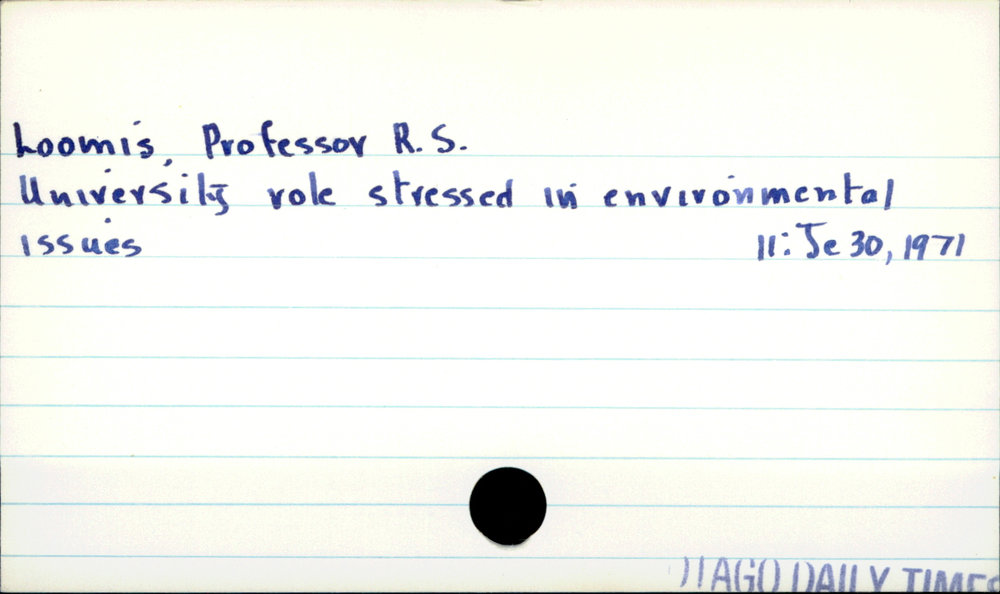 Loomis, Professor R. S.
University role stressed in environmental
issues 11: Je 30, 1971
DAILY TIMES